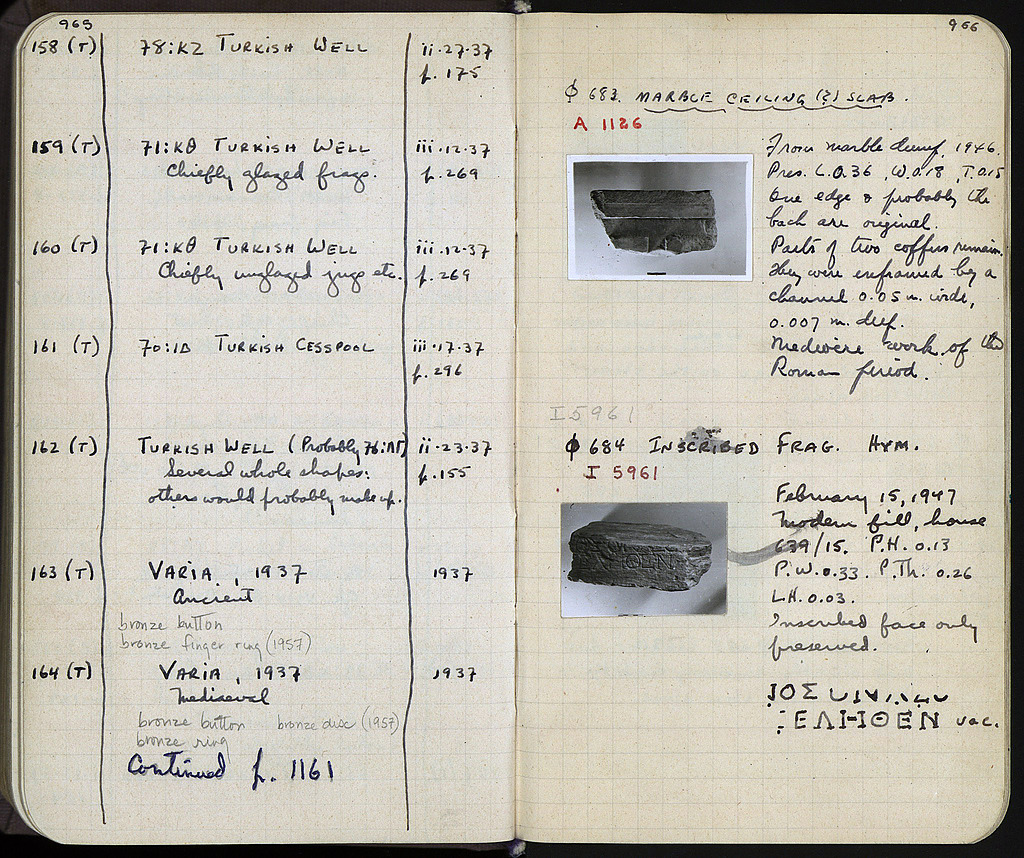 965
158 (T) 78:KZ TURKISH WELL ii·27·37
p. 175
159 (T) 71:KΘ TURKISH WELL iii·12·37
Chiefly glazed frags. p. 269
160 (T) 71:KΘ TURKISH WELL iii·12·37
Chiefly unglazed jugs etc. p. 269
161 (T) 70:ΙΔ TURKISH CESSPOOL iii·17·37
p. 296
162 (T) TURKISH WELL (Probably 76: ii·23·37
Several whole shapes: p. 155
others would probably make up.
163 (T) VARIA, 1937 1937
Ancient
bronze button
bronze finger ring (1957)
164 (T) VARIA, 1937 1937
Mediaeval
bronze button bronze disc (1957)
bronze ring
Continued p. 1161
966
Φ 683. MARBLE CEILING (?) SLAB.
A 1126
From marble dump, 1946.
Pres. L. 0.36, W. 0.18, T. 0.15
One edge & probably the
back are original.
Parts of two coffers remain.
They were enframed by a
channel 0.05 m. wide,
0.007 m. deep.
Mediocre work of the
Roman period.
I 5961
Φ 684 INSCRIBED FRAG. HYM.
I 5961
February 15, 1947
Modern fill, house
639/15. P.H. 0.13
P.W. 0.33. P.Th. 0.26
L.H. 0.03.
Inscribed face only
preserved.
ΟΣ
ΕΛΗΘΕΝ vac.